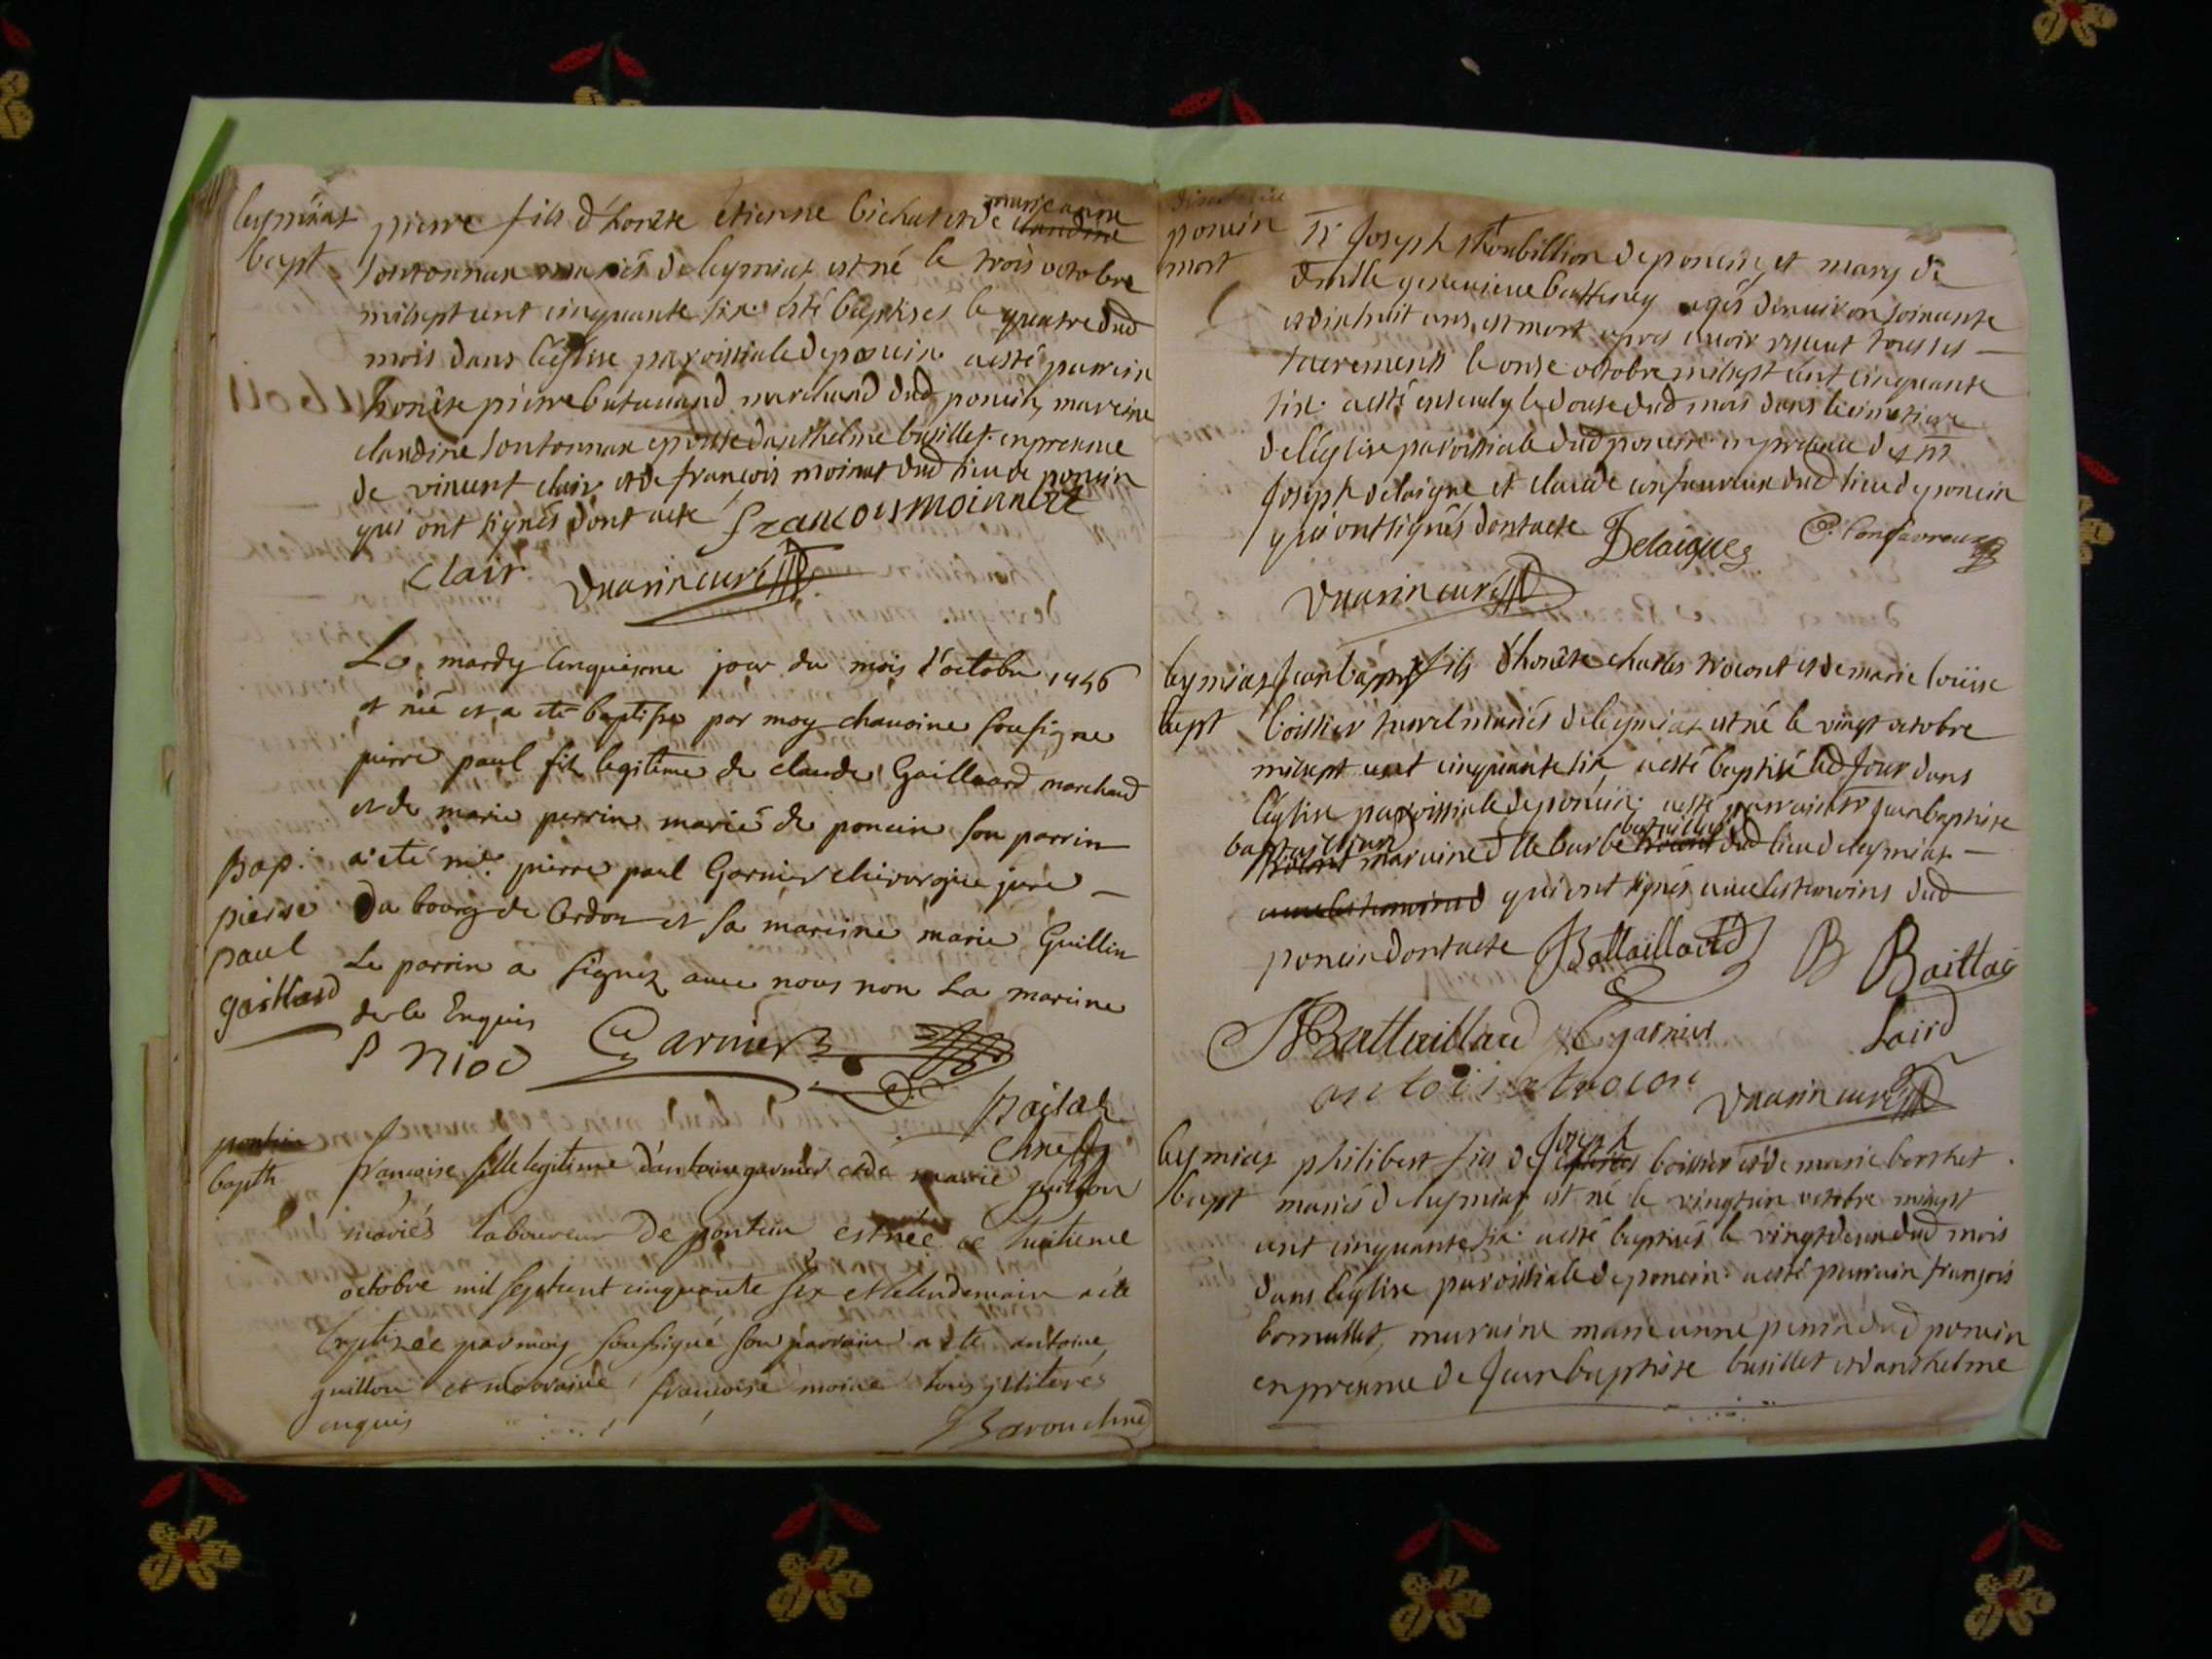 leymiat
bapt
pierre fils d'honête etienne bichat et de claudine marieanne
sontonnax mariés de leymiat est né le trois octobre
milsept cent cinquante six a esté baptisés le quatre dud
mois dans l'eglise paroissiale de poncin a esté parrein
honête pierre batauaud marchand dud poncin, mareine
claudine sontonnax epouse danthelme busillet en presence
de vincent clair et de francois moinat dud lieu de poncin
qui ont signés dont acte francois moinnat
Clair
Duarin curé
Bap.
pierre
paul
gaillard
Le mardy Cinquiesme jour du mois d'octobre 1756
et né et a eté baptisse par moy chanoine sousigne
pierre paul fils legitime de claude Gaillard marchand
et de marie perrin mariés de poncin son parrin
a eté me. pierre paul Garnier chirurgien juré
du bourg de Cerdon et sa mareine marie Guillin
Le parrin a signez avec nous non la mareine
de le Enquis
P Niod Garnier
Bailad
chne
poncin
baptt
francoise fille legitime d'antoine garnier et de marie guillon
mariés laboureur de poncin est née le huitieme
octobre mil sept cent cinquante six et le lendemain a ete
baptizee par moy soussigné son parrain a ete antoine
guillon et marraine francoise moine tous illiterés
enquis
Baron chne
poncin
mort
Sr Joseph Thoubillion de poncin et mary de
dmlle genevieve batteney agés denviron soixante
et dixhuit ans, est mort apres avoir resceut tous ses
sacrements le onse octobre milsept cent cinquante
six a esté ensevely le douse dud mois dans le cimetiere
de l'église paroissiale dud poncin en presence de m
Joseph delaigue et claude confavreux dud lieu de poncin
qui ont signés dont acte Delaigue C. Confavreux
Duarin curé
leymiat
bapt
Jean bapte fils d'honête charles trocont et de marie louise
boissier mariés de leymiat est né le vingt octobre
milsept cent cinquante six a esté baptisé led jour dans
l'église paroissiale de poncin a esté parrain sr Jean baptiste
bataillard maraine dlle barbe bataillard dud lieu de leymiat
qui ont signés avec les temoins dud
poncin dont acte Battaillard B Baillad
JBattaillard C garnier Laird
antoine trocon
Duarin curé
leymiat
bapt
philibert fils de Joseph boissier et de marie borshet
mariés de leymiat est né le vingt un octobre milsept
cent cinquante six a esté baptisés le vingt deux dud mois
dans l'église paroissiale de poncin a esté parrain françois
bornallet, maraine marie anne perrin dud poncin
en presence de Jean baptiste busillet et d'anthelme